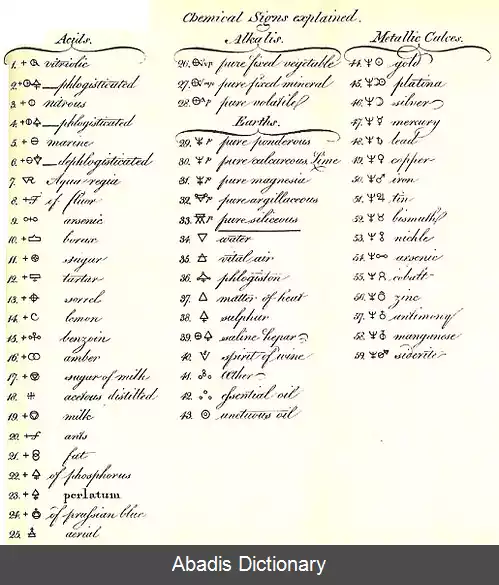 Chemical Signs explained.
Acids.
1. vitriolic
2. phlogisticated
3. nitrous
4. phlogisticated
5. marine
6. dephlogisticated
7. Aqua regia
8. of fluor
9. arsenic
10. borax
11. sugar
12. tartar
13. sorrel
14. lemon
15. benzoin
16. amber
17. sugar of milk
18. acetous distilled
19. milk
20. ants
21. fat
22. of phosphorus
23. perlatum
24. of prussian blue
25. aerial
Alkalis.
26. pure fixed vegetable
27. pure fixed mineral
28. pure volatile
Earths.
29. pure ponderous
30. pure calcareous Lime
31. pure magnesia
32. pure argillaceous
33. pure siliceous
34. water
35. vital air
36. phlogiston
37. matter of heat
38. sulphur
39. saline hepar
40. spirit of wine
41. Æther
42. essential oil
43. unctuous oil
Metallic Calces.
44. gold
45. platina
46. silver
47. mercury
48. lead
49. copper
50. iron
51. tin
52. bismuth
53. nickle
54. arsenic
55. cobalt
56. zinc
57. antimony
58. manganese
59. siderite
Abadis Dictionary